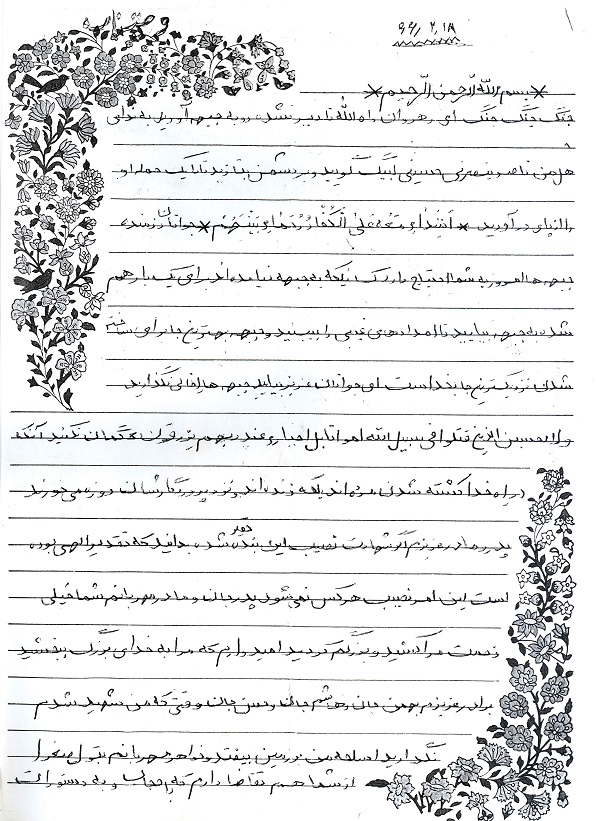 وصیتنامه
۶۶/۲/۱۸
۱
*بسم الله الرحمن الرحیم*
جنگ جنگ جنگ ای رهروان راه الله تا دیر نشده رو به جبهه آورید به ندای
هل من ناصر ینصرنی حسینی لبیک گویید و بر دشمن بتازید تا یک حمله او
را از پای درآورید * اشداء مع علی الکفار رحماء بینهم * جوانان رزمنده
جبهه ها امروز به شما احتیاج دارند کسانیکه به جبهه نیامده اند برای یک بار هم
شده به جبهه بیایید تا امدادهای غیبی را ببینید و جبهه بهترین جا برای ساخته
شدن نزدیکترین جا بخدا است ای جوانان عزیز بیایید جبهه ها را خالی نگذارید
ولا تحسبن الذین قتلوا فی سبیل الله امواتا بل احیاء عند ربهم یرزقون * گمان نکنید آنکه
در راه خدا کشته شدن مرده اند بلکه زنده اند و نزد پروردگارشان روزی می خورند
پدر و مادر عزیزم اگر شهادت نصیب این بنده حقیر شده بدانید که تقدیر الهی بوده
است این امر نصیب هر کس نمی شود پدر جان و مادر مهربانم شما خیلی
زحمت مرا کشید و بزرگم کردید امیدوارم که مرا به خدای بزرگ ببخشید
برادر عزیزم بهمن جان و هاشم جان و حسن جان وقتی که من شهید شدم
نگذارید اسلحه من بر زمین بیفتد و خواهر مهربانم بتول صغرا
از شما هم تقاضا دارم که حجاب و به دستورات